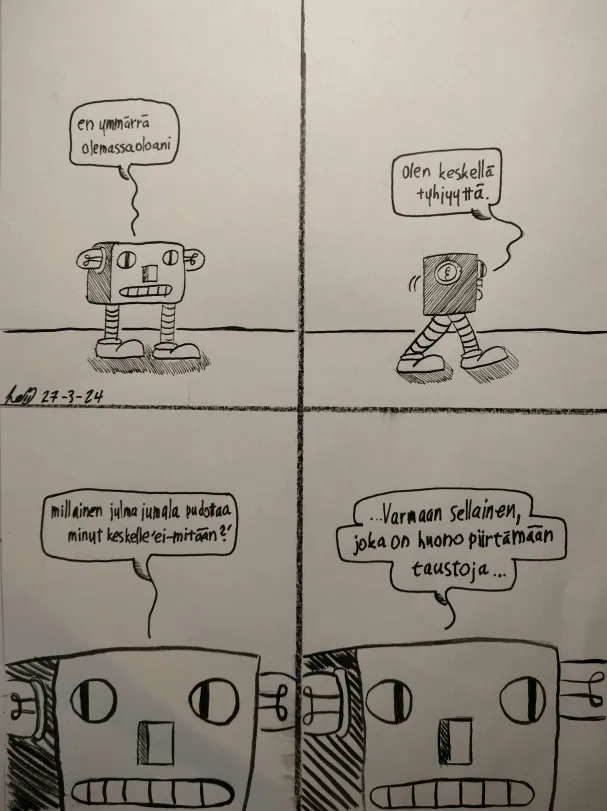 en ymmärrä
olemassaoloani
Olen keskellä
tyhjyyttä.
27-3-24
millainen julma jumala pudottaa
minut keskelle "ei-mitään"?
...Varmaan sellainen,
joka on huono piirtämään
taustoja...